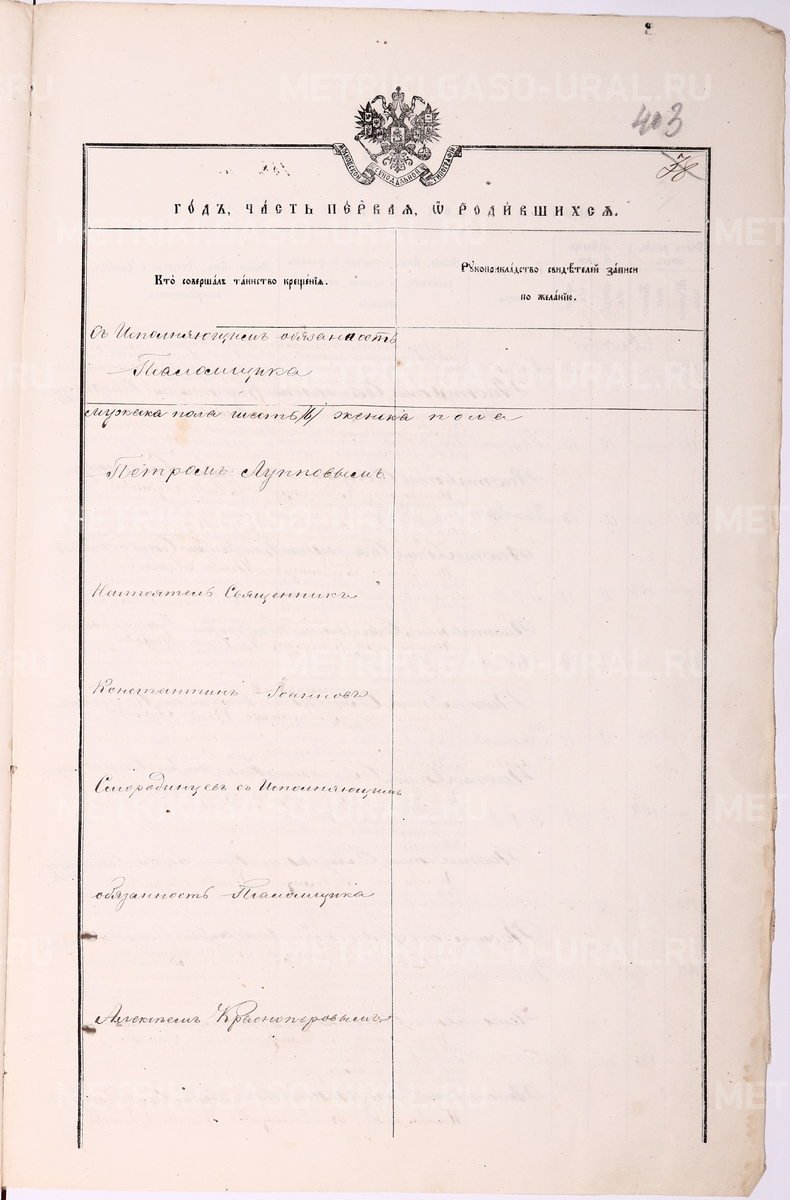 403
МОСКОВСКОЙ СУНОДАЛЬНОЙ ТИПОГРАФІИ
ГОДЪ, ЧАСТЬ ПЕРВАЯ, Ѡ РОДИВШИХСЯ.
Кто совершалъ таинство крещенія.
Рукоприкладство свидѣтелей записи
по желанію.
Съ Исполняющимъ обязаность
Псаломщика
мужска пола шесть /6/ женска пола
Петромъ Лупповымъ
Настоятель Священникъ
Константинъ Іоанновъ
Смородинцевъ съ Исполняющимъ
обязанность Псаломщика
Алексѣемъ Красноперовымъ
METRIKI.GASO-URAL.RU